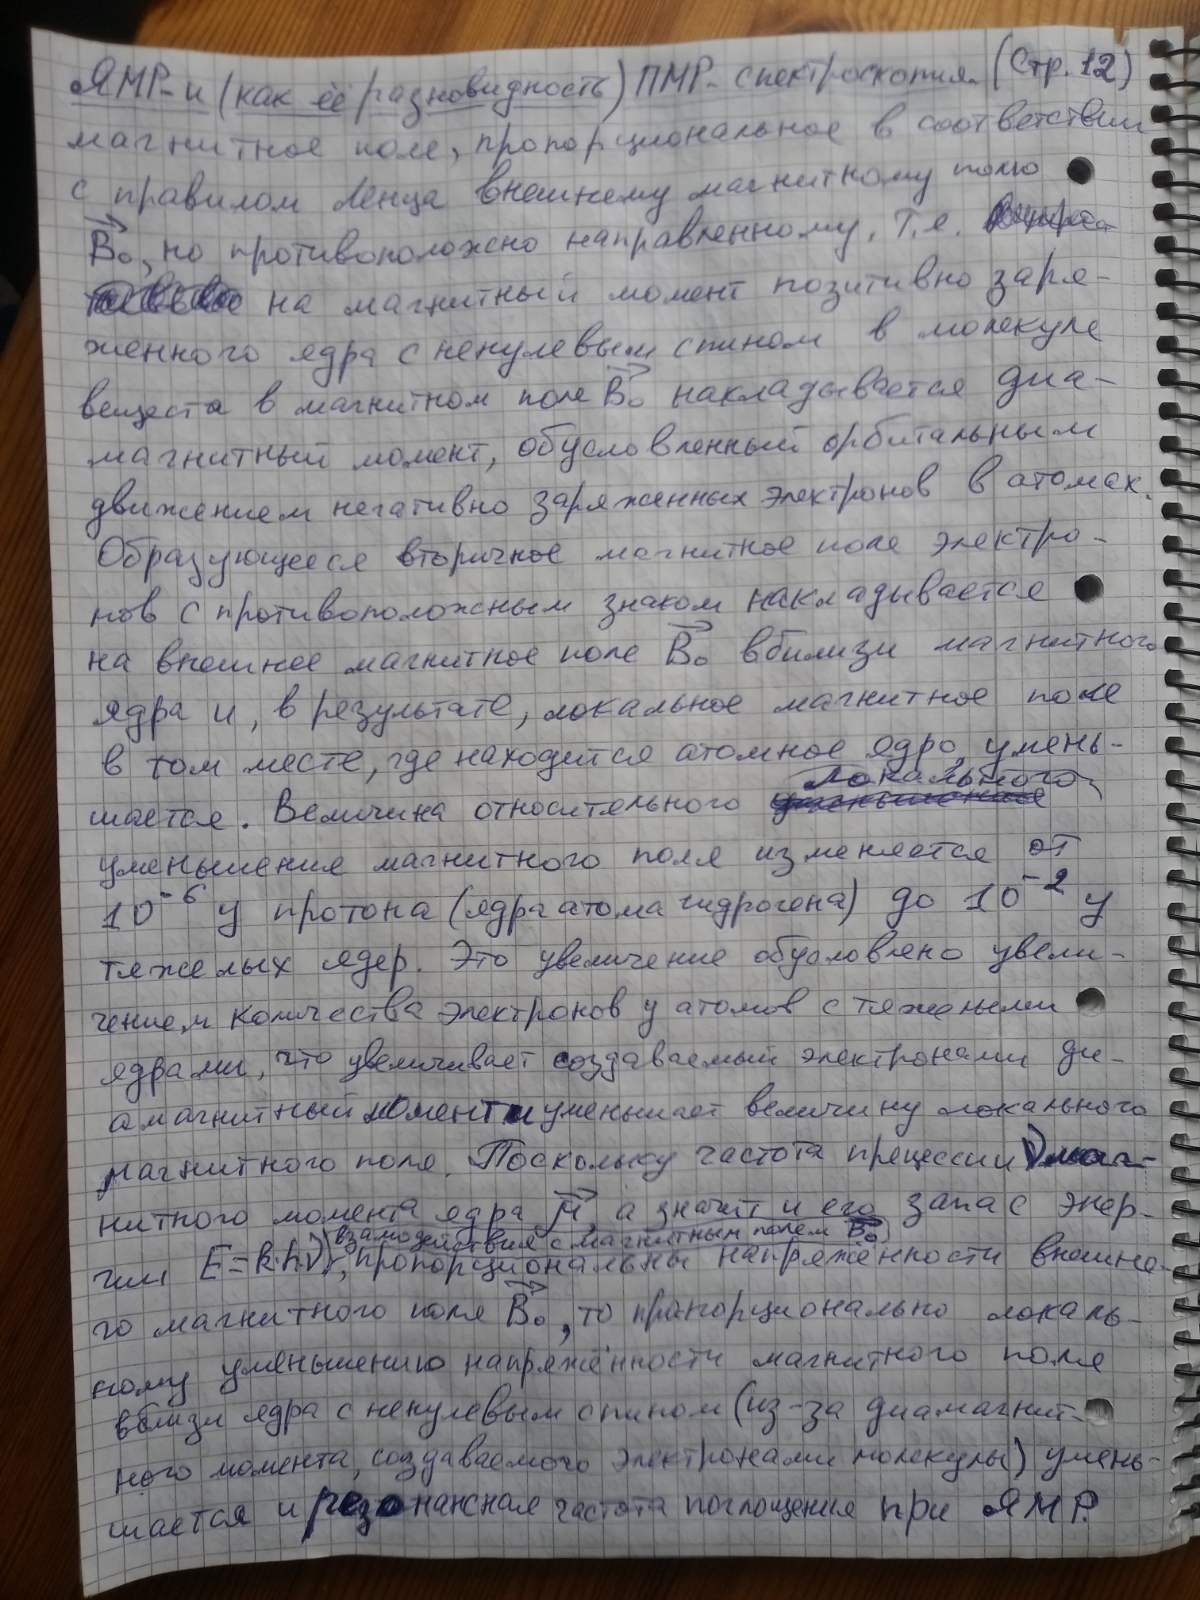 ЯМР- и (как её разновидность) ПМР- спектроскопия. (Стр. 12)
магнитное поле, пропорциональное в соответствии
с правилом Ленца внешнему магнитному полю
B₀, но противоположно направленному. Т.е.
на магнитный момент позитивно заря-
женного ядра с ненулевым спином в молекуле
вещества в магнитном поле B₀ накладывается диа-
магнитный момент, обусловленный орбитальным
движением негативно заряженных электронов в атомах.
Образующееся вторичное магнитное поле электро-
нов с противоположным знаком накладывается
на внешнее магнитное поле B₀ вблизи магнитного
ядра и, в результате, локальное магнитное поле
в том месте, где находится атомное ядро, умень-
шается. Величина относительного локального
уменьшения магнитного поля изменяется от
10⁻⁶ у протона (ядра атома гидрогена) до 10⁻² у
тяжелых ядер. Это увеличение обусловлено увели-
чением количества электронов у атомов с тяжелыми
ядрами, что увеличивает создаваемый электронами ди-
амагнитный момент и уменьшает величину локального
магнитного поля. Поскольку частота прецессии ν маг-
нитного момента ядра μ, а значит и его запас энер-
гии E=k·hν (взамодействия с магнитным полем B₀), пропорциональны напряжённости внешне-
го магнитного поля B₀, то пропорционально локаль-
ному уменьшению напряжённости магнитного поля
вблизи ядра с ненулевым спином (из-за диамагнит-
ного момента, создаваемого электронами молекулы) умень-
шается и резонансная частота поглощения при ЯМР.